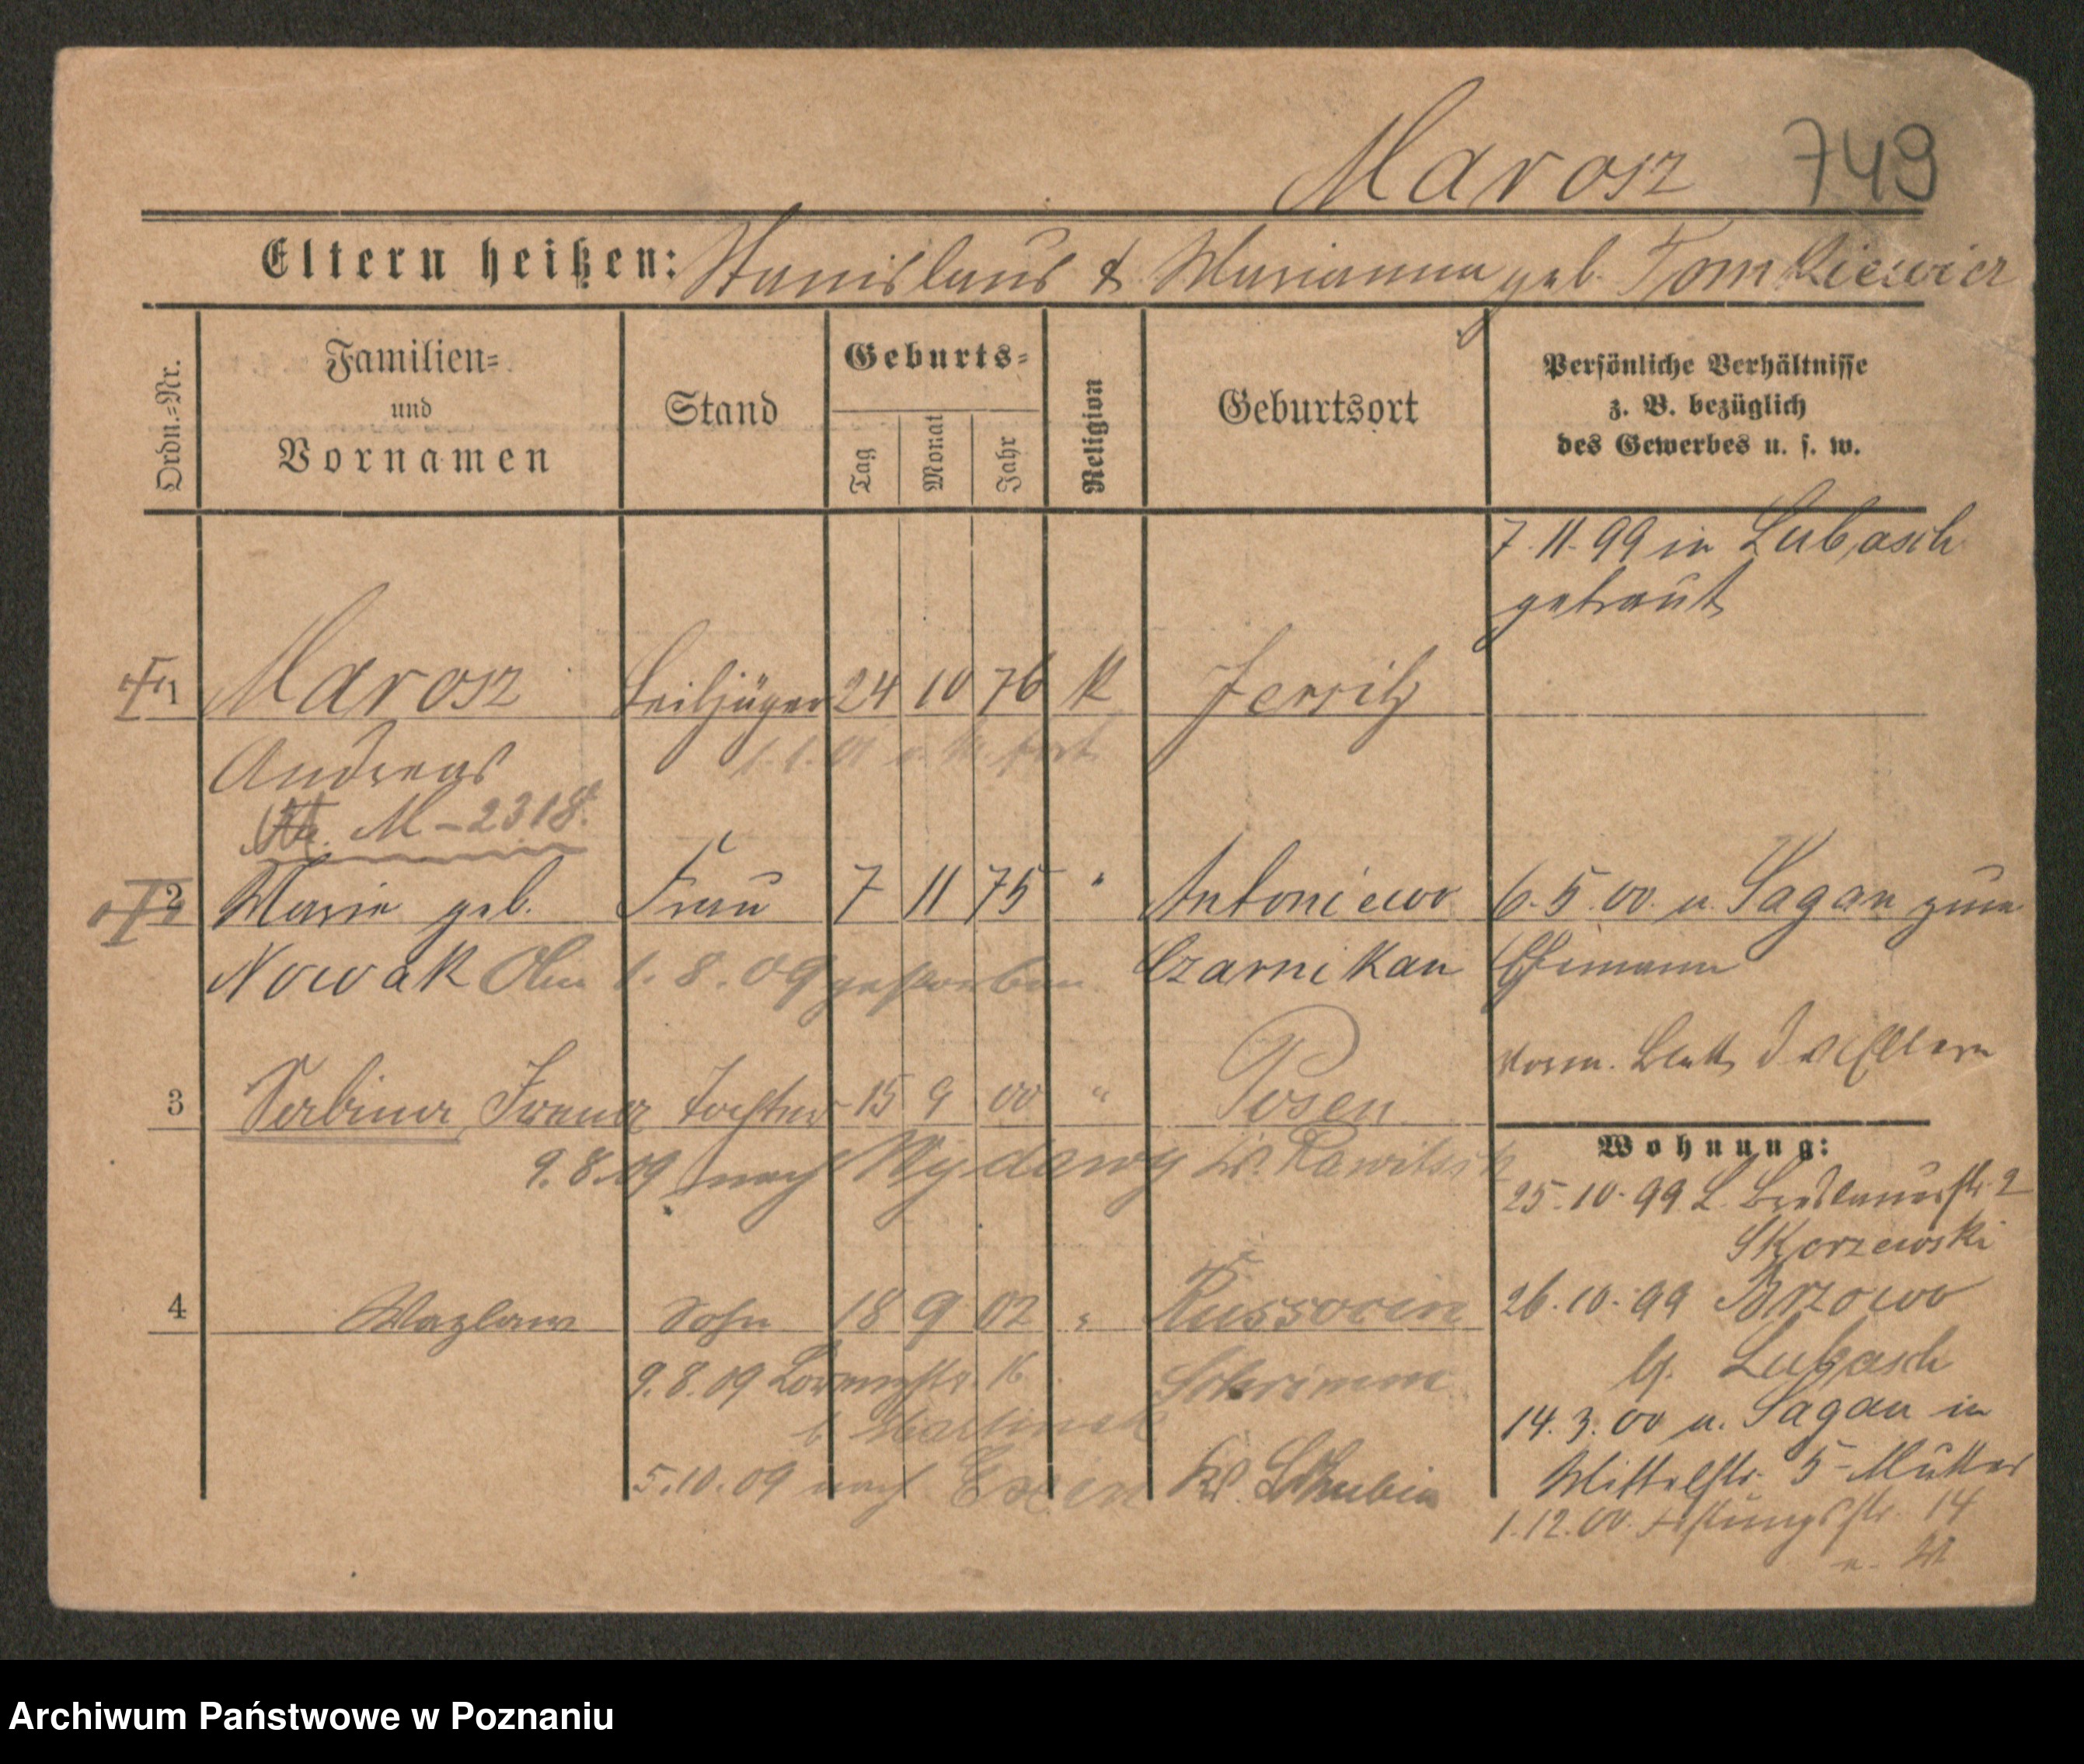 Marosz 749
Eltern heißen: Stanislaus & Marianna geb. Tomkiewicz
Ordn.=Nr.
Familien=
und
Vornamen
Stand
Geburts=
Tag Monat Jahr
Religion
Geburtsort
Persönliche Verhältnisse
z. B. bezüglich
des Gewerbes u. s. w.
7.11.99 in Lubasch
getraut
1 Marosz Leibjäger 24 10 76 K Jersitz
Andreas
M-2318.
2 Marie geb. Frau 7 11 75 " Antoniewo 6.5.00. u. Sagan zum
Nowak 1.8.09 gestorben Czarnikau Ehemann
3 Tochter 15 9 00 " Posen
9.8.09 nach Wydawy Kr. Rawitsch
Wohnung:
25.10.99 L. Breslauerstr. 2
Skorzewski
4 Wazlaw Sohn 18 9 02 " Kussocin 26.10.99 Brzowo
9.8.09 16 Schrimm b/. Lubasch
14.3.00 u. Sagan in
5.10.09 nach Exin Kr. Schubin Mittelstr. 5 Mutter
1.12.00. Festungsstr. 14
Archiwum Państwowe w Poznaniu